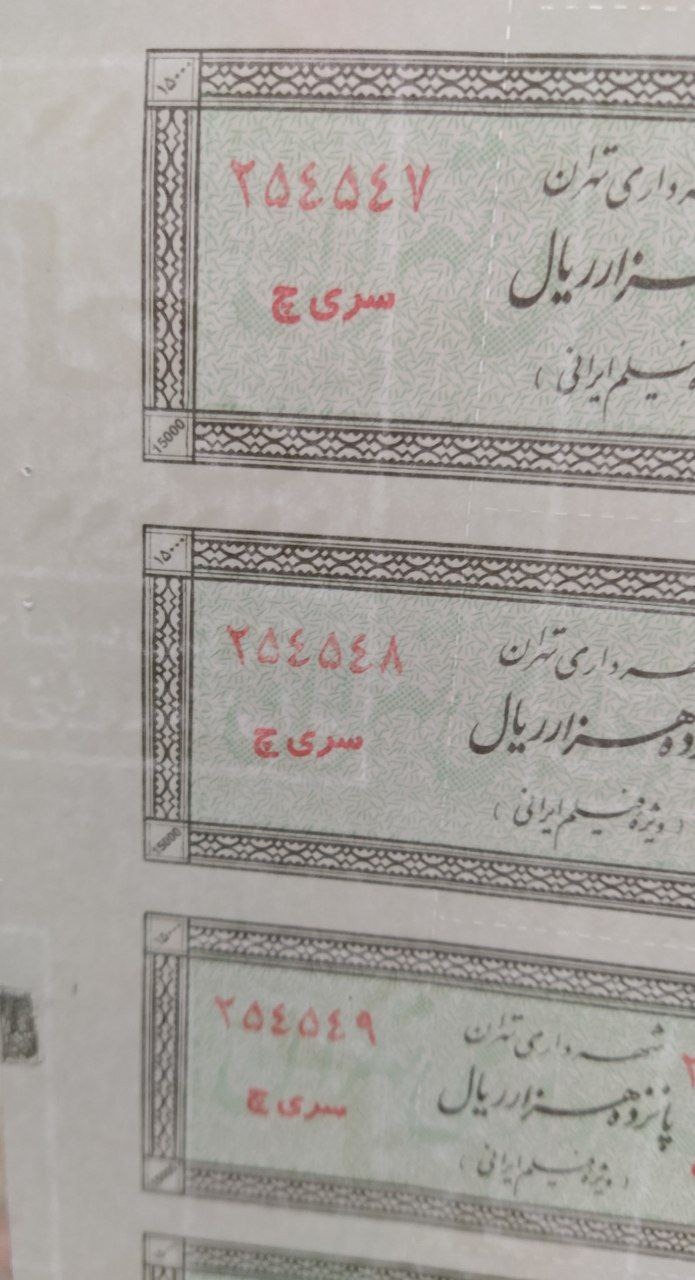 ۱۵۰۰۰
۲۵٤۵٤۷
سری چ
هرداری تهران
هزار ریال
فیلم ایرانی )
15000
۱۵۰۰۰
۲۵٤۵٤۸
سری چ
شهرداری تهران
پانزده هزار ریال
( ویژه فیلم ایرانی )
15000
۱۵۰۰۰
۲۵٤۵٤۹
سری چ
شهرداری تهران
پانزده هزار ریال
( ویژه فیلم ایرانی )